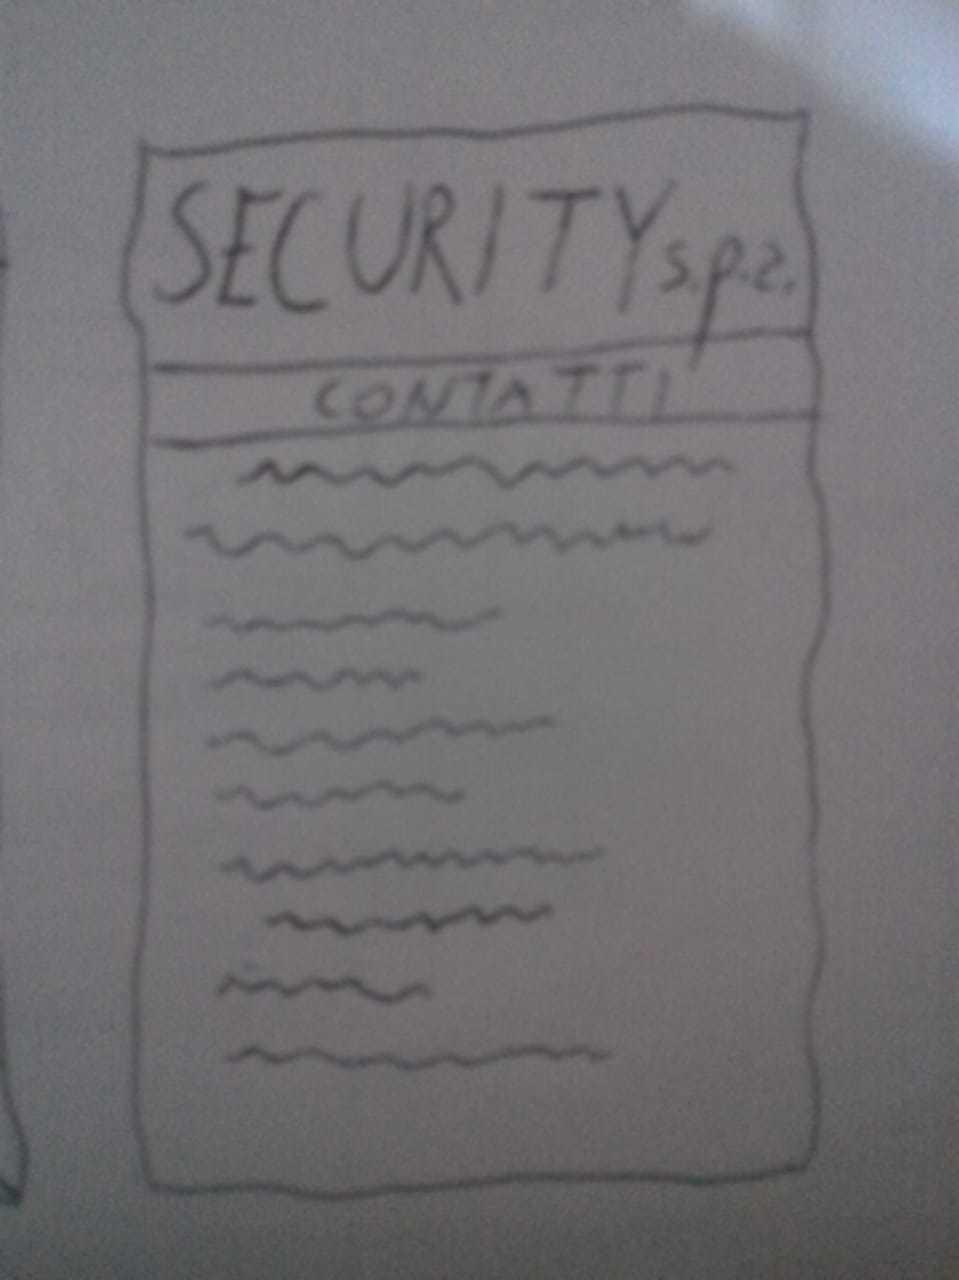 SECURITY s.p.a.
CONTATTI